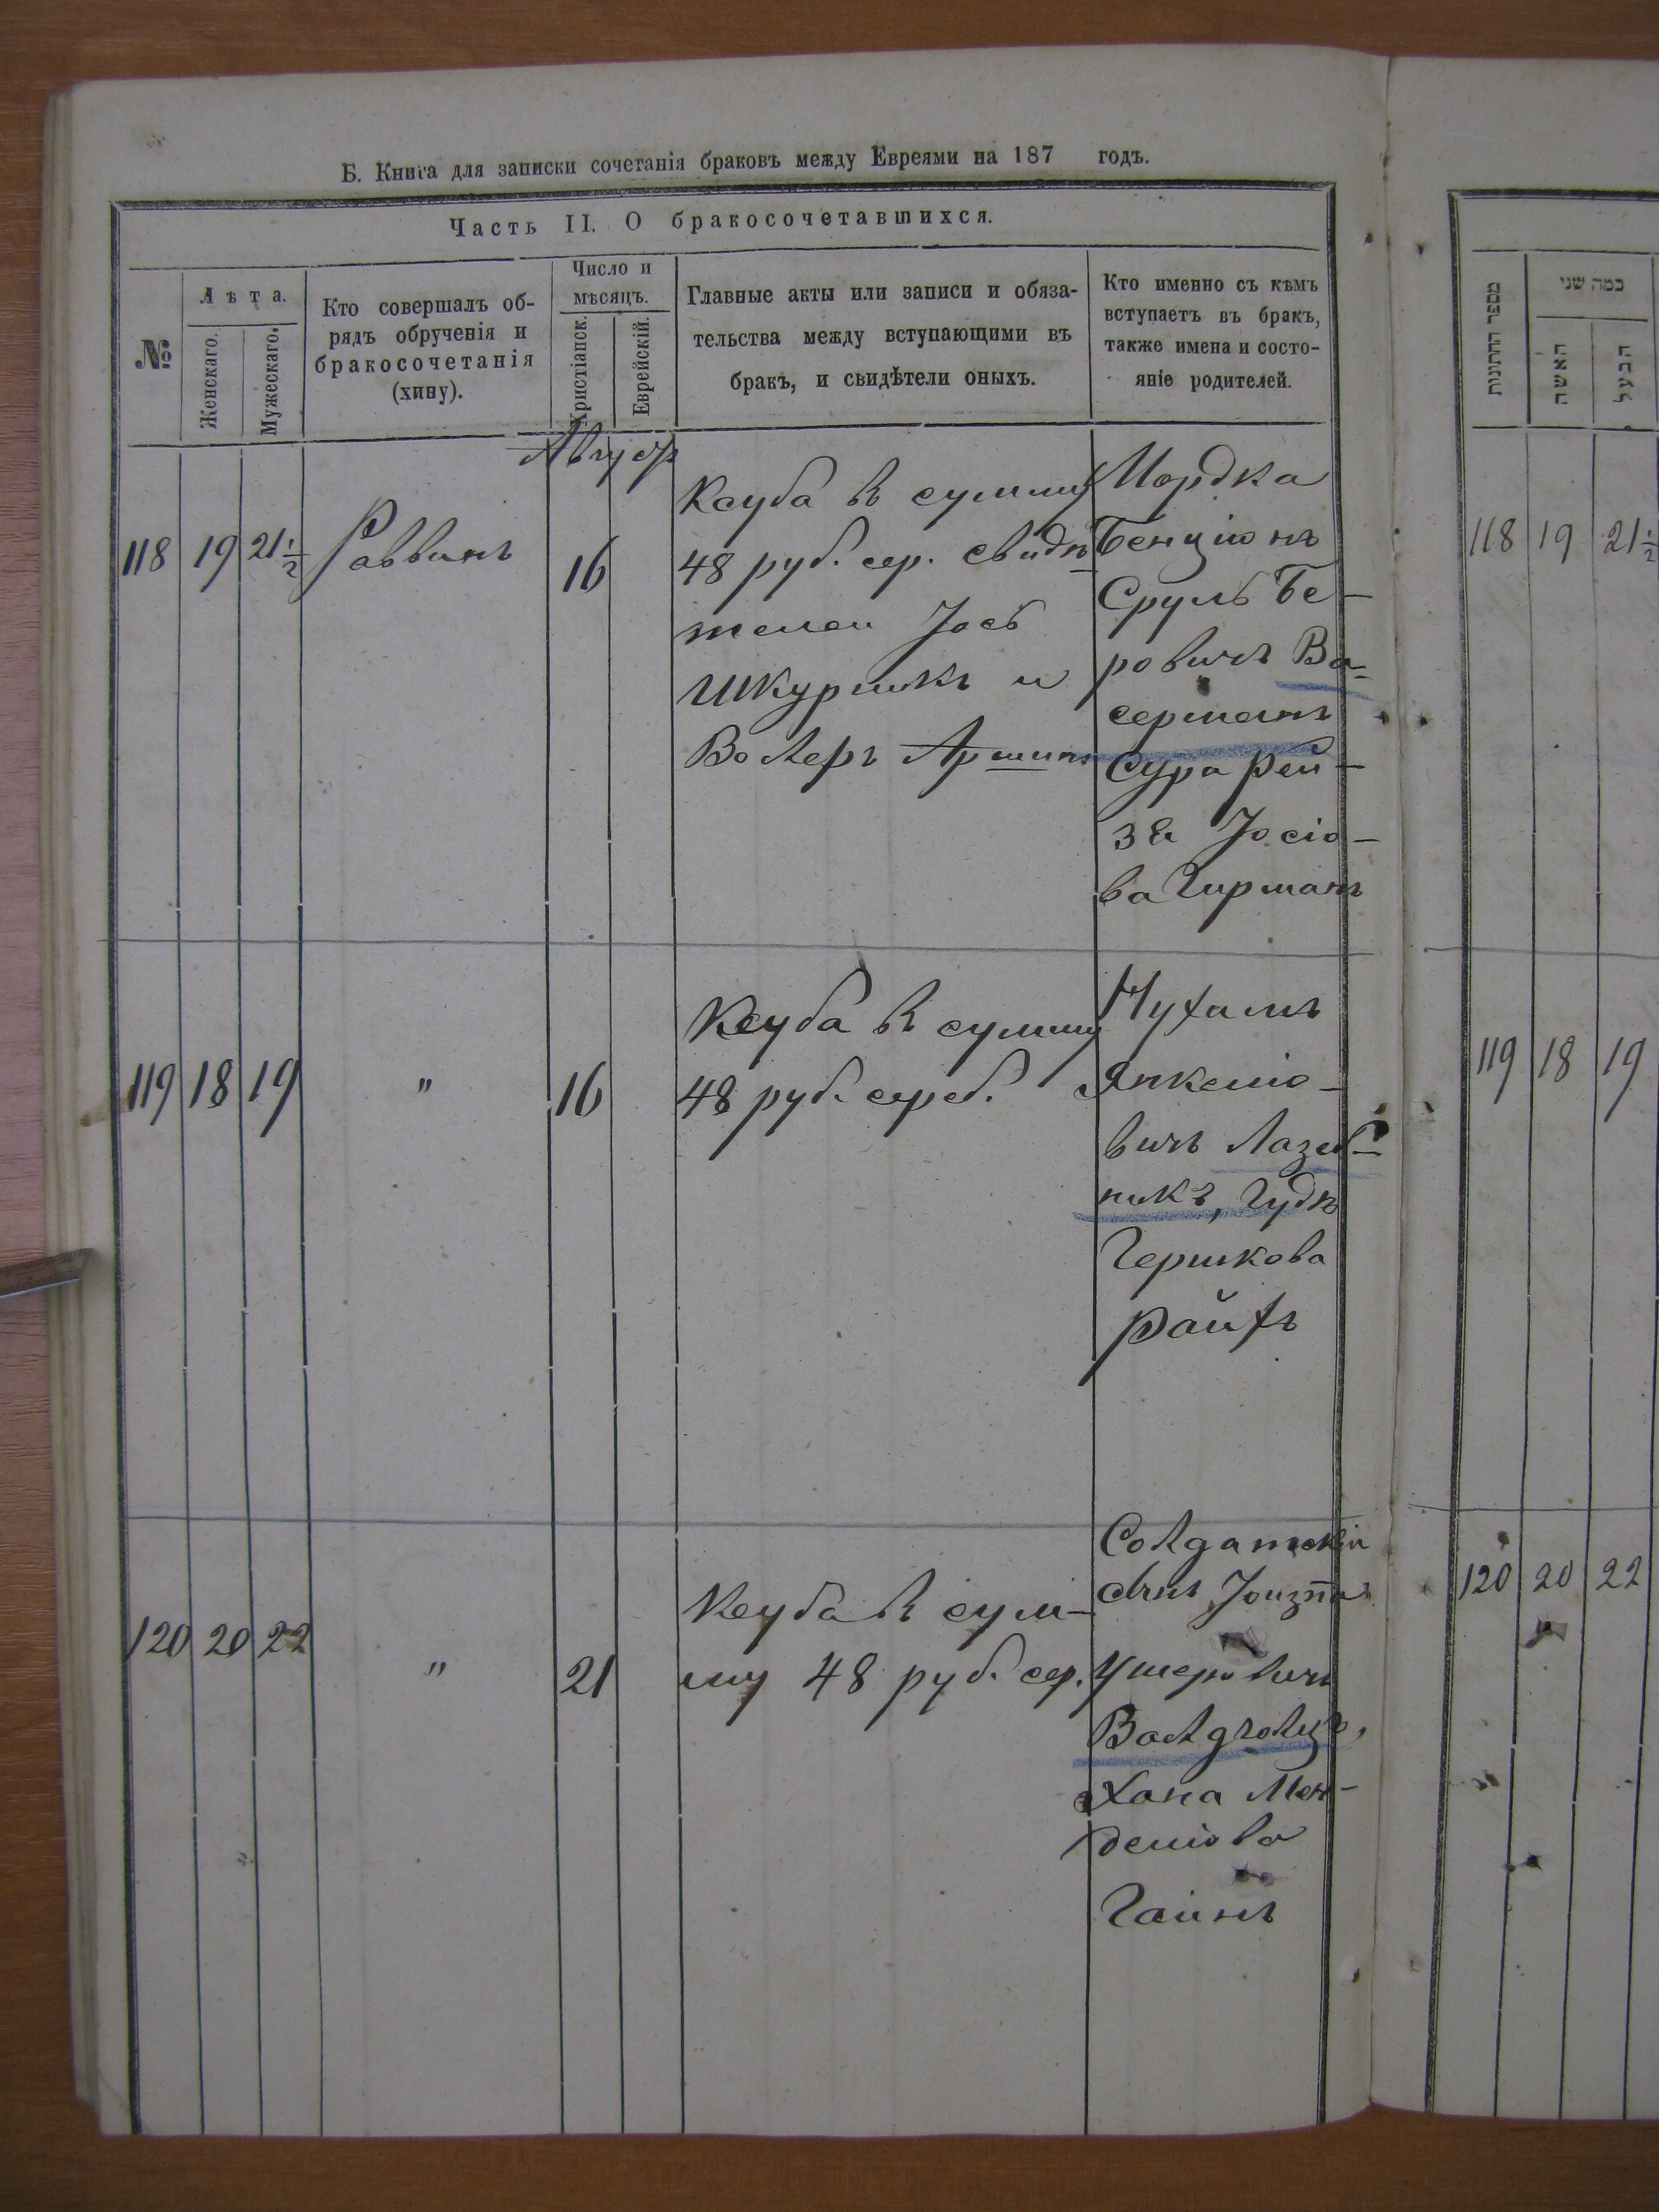 Б. Книга для записки сочетанія браковъ между Евреями на 187 годъ.
Часть II. О бракосочетавшихся.
№
Лѣта.
Женскаго.
Мужескаго.
Кто совершалъ об-
рядъ обрученія и
бракосочетанія
(хипу).
Число и
мѣсяцъ.
Христіанск.
Еврейскій.
Главные акты или записи и обяза-
тельства между вступающими въ
бракъ, и свидѣтели оныхъ.
Кто именно съ кѣмъ
вступаетъ въ бракъ,
также имена и состо-
яніе родителей.
Август
118 19 21½ Раввинъ 16
Ксуба в сумму
48 руб. сер. свидѣ
тели Іось
Шкурникъ и
Волеръ Аршинъ
Мордка
Бенціонъ
Сруль Бе-
ровичъ Ва-
серманъ
Сура Рей-
за Іосіо-
ва Гирманъ
119 18 19 " 16
Ксуба в сумму
48 руб. сереб.
Нухимъ
Янкеліо-
вичъ Лазеб-
никъ, Гудѣ
Гершкова
Райхъ
120 20 22 " 21
Ксуба в сум-
му 48 руб. сер.
Солдатскій
сынъ
Ушеровичъ
Хана Мен-
деліова
מספר החתונות
כמה שני
האשה
הבעל
118 19 21½
119 18 19
120 20 22